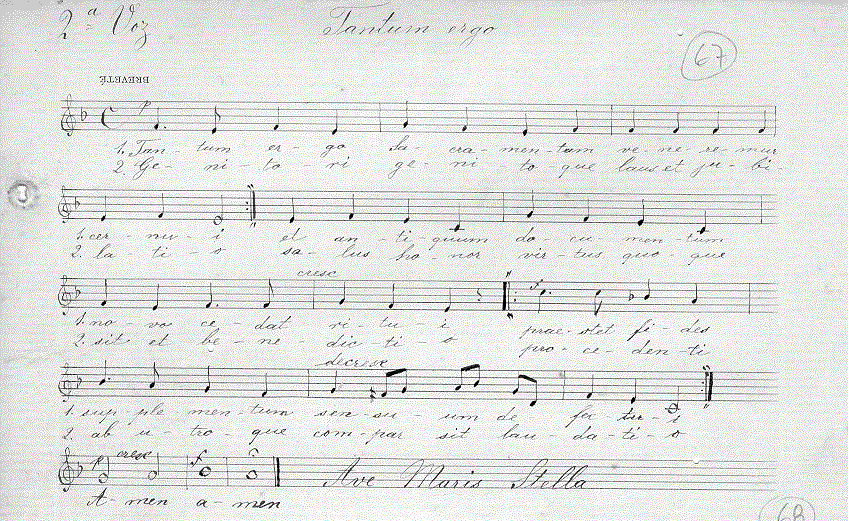 2ª Voz Tantum ergo
67
BREVETÉ
p
1. Tan- tum er- go Sa- cra- men- tum ve- ne- re- mur
2. Ge- ni- to ri ge- ni- to- que laus et ju- bi-
1. cer- nu i et an- ti- quum do- cu- men- tum
2. la- ti- o sa- lus ho- nor vir- tus quo- que
cresc
1. no- vo ce- dat ri- tu- i prae- stet fi- des
2. sit et be- ne dic- ti o pro- ce- den- ti
decresc
1. sup- ple- men- tum sen- su um de fec- tu- i
2. ab u- tro- que com- par sit lau- da- ti- o
p cresc f
A- men a- men
Ave Maris Stella
68